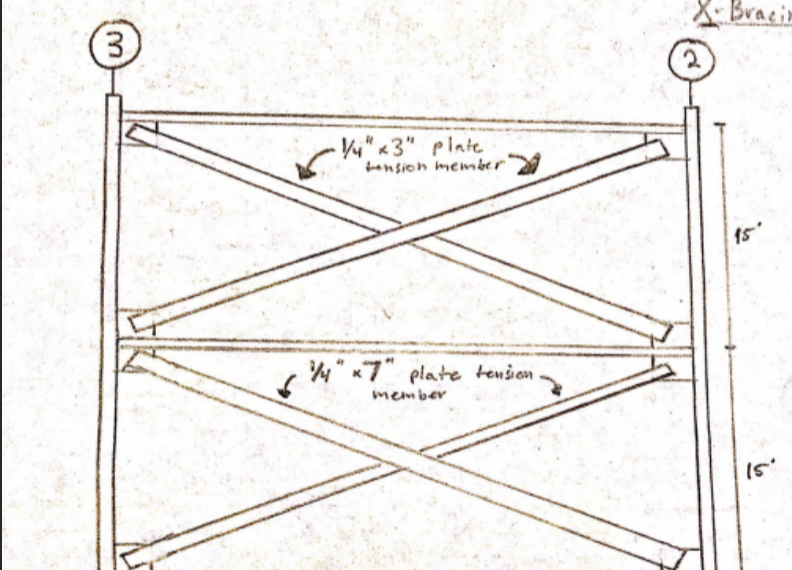 X-Bracin
3
2
1/4" x 3" plate
tension member
15'
1/4" x 7" plate tension
member
15'